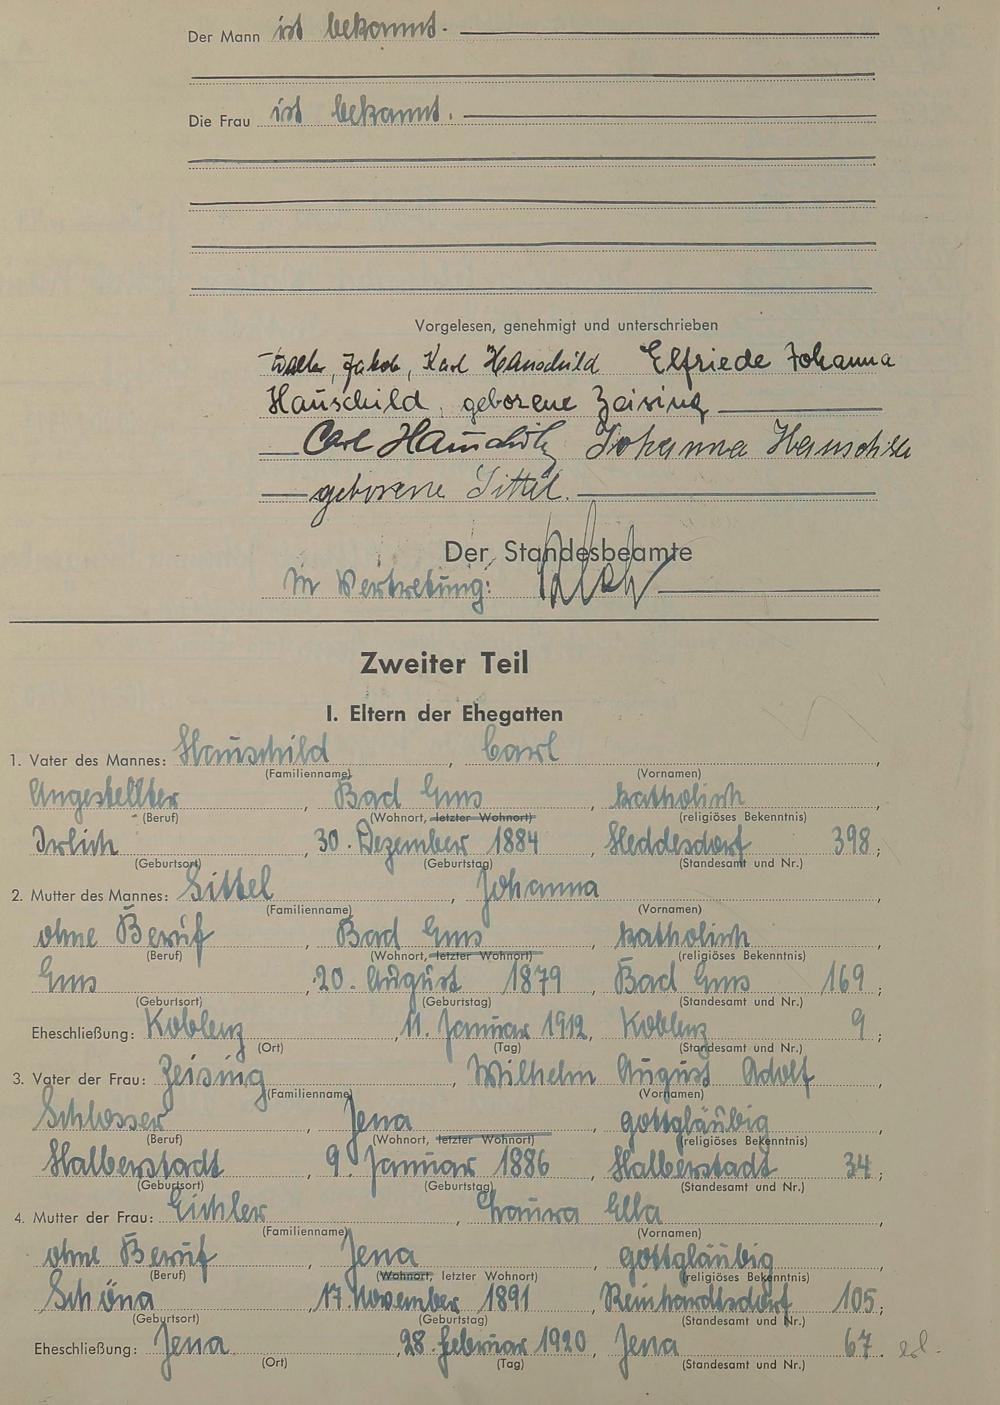 Der Mann ist bekannt.
Die Frau ist bekannt.
Vorgelesen, genehmigt und unterschrieben
Walter, Jakob, Karl Hauschild Elfriede Johanna
Hauschild, geborene Zeising
Carl Hauschild Johanna Hauschild
geborene Sittel.
Der Standesbeamte
In Vertretung:
Zweiter Teil
I. Eltern der Ehegatten
1. Vater des Mannes: Hauschild, Carl,
(Familienname) (Vornamen)
Angestellter, Bad Ems, katholisch
(Beruf) (Wohnort, letzter Wohnort) (religiöses Bekenntnis)
Irlich, 30. Dezember 1884, Heddesdorf 398;
(Geburtsort) (Geburtstag) (Standesamt und Nr.)
2. Mutter des Mannes: Sittel, Johanna,
(Familienname) (Vornamen)
ohne Beruf, Bad Ems, katholisch,
(Beruf) (Wohnort, letzter Wohnort) (religiöses Bekenntnis)
Ems, 20. August 1879, Bad Ems 169;
(Geburtsort) (Geburtstag) (Standesamt und Nr.)
Eheschließung: Koblenz, 11. Januar 1912, Koblenz 9;
(Ort) (Tag) (Standesamt und Nr.)
3. Vater der Frau: Zeising, Wilhelm August Adolf,
(Familienname) (Vornamen)
Schlosser, Jena, gottgläubig,
(Beruf) (Wohnort, letzter Wohnort) (religiöses Bekenntnis)
Halberstadt, 9. Januar 1886, Halberstadt 34;
(Geburtsort) (Geburtstag) (Standesamt und Nr.)
4. Mutter der Frau: Eichler, Elba,
(Familienname) (Vornamen)
ohne Beruf, Jena, gottgläubig,
(Beruf) (Wohnort, letzter Wohnort) (religiöses Bekenntnis)
Schöna, 17. November 1891, Reinhardtsdorf 105;
(Geburtsort) (Geburtstag) (Standesamt und Nr.)
Eheschließung: Jena, 28. Februar 1920, Jena 67.
(Ort) (Tag) (Standesamt und Nr.)